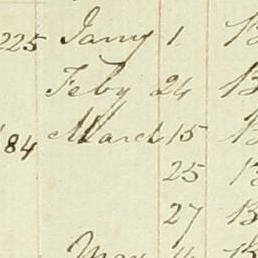 225 Jany 1 B
Feby 24 B
84 March 15 B
25 B
27 B
May 4 B